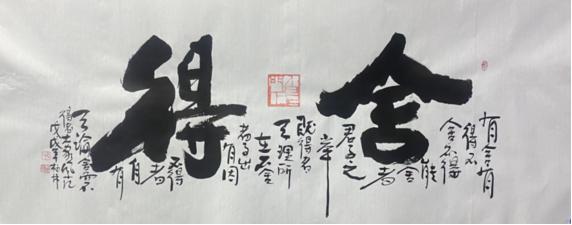 舍得
有舍有
得不
舍不得
能
舍
者
君子之
举
既得者
天理所
在不舍
者事出
有因
得
者
有
戊戌年